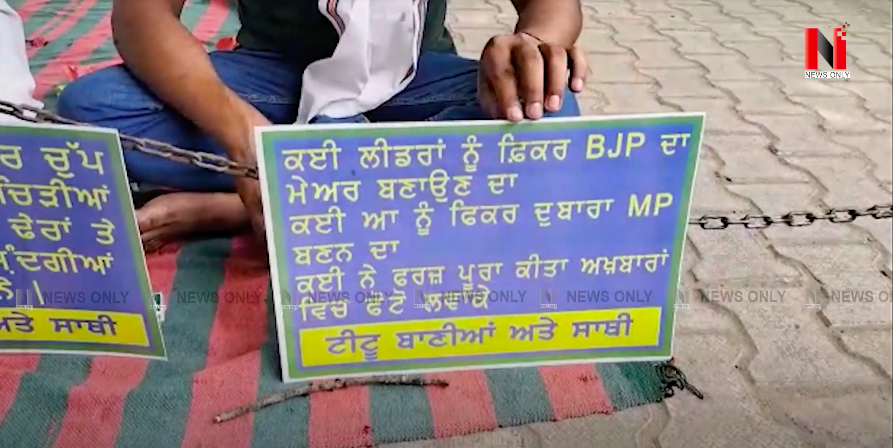 NEWS ONLY
ਰ ਚੁੱਪ
ਚਿੜੀਆਂ
ਢੇਰਾਂ ਤੇ
ਨੇ।
ਅਤੇ ਸਾਥੀ
ਕਈ ਲੀਡਰਾਂ ਨੂੰ ਫ਼ਿਕਰ BJP ਦਾ
ਮੇਅਰ ਬਣਾਉਣ ਦਾ
ਕਈ ਆ ਨੂੰ ਫਿਕਰ ਦੁਬਾਰਾ MP
ਬਣਨ ਦਾ
ਕਈ ਨੇ ਫਰਜ਼ ਪੂਰਾ ਕੀਤਾ ਅਖ਼ਬਾਰਾਂ
ਵਿਚ ਫੋਟੋ ਲਵਾਕੇ
ਟੀਟੂ ਬਾਣੀਆਂ ਅਤੇ ਸਾਥੀ
NEWS ONLY NEWS ONLY NEWS ONLY NEWS ONLY NEWS ONLY NEWS ONLY